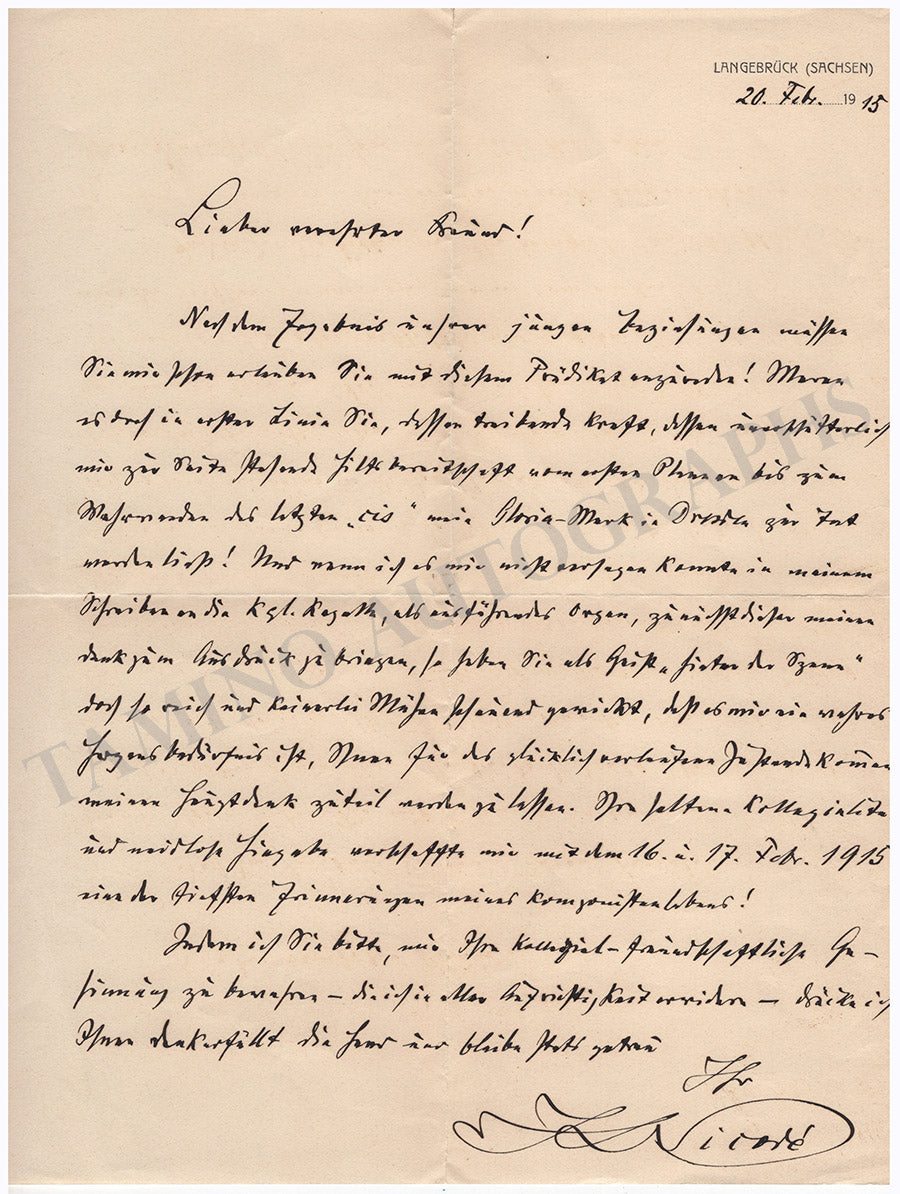 LANGEBRÜCK (SACHSEN)
20. Febr. 1915
Lieber verehrter Freund!
Nach dem Ergebnis unsrer jungen Beziehungen müssen
Sie mir schon erlauben Sie mit diesem Prädikat anzureden! Waren
es doch in erster Linie Sie, dessen treibende Kraft, dessen unerschütterlich
mir zur Seite stehende Hilfsbereitschaft vom ersten Planen bis zum
Wahrwerden des letzten „cis" mein Gloria-Werk in Dresden zur Tat
werden ließ! Und wenn ich es mir nicht versagen konnte in meinem
Schreiben an die Kgl. Kapelle, als ausführendes Organ, zunächst dieser meinen
Dank zum Ausdruck zu bringen, so haben Sie als Geist „hinter der Szene"
doch so reich und keinerlei Mühen scheuend gewirkt, daß es mir ein wahres
Herzensbedürfnis ist, Ihnen für das glücklich verlaufene Zustandekommen
meinen Hauptdank zuteil werden zu lassen. Ihre seltene Kollegialität
und neidlose Hingabe verschaffte mir mit dem 16. u. 17. Febr. 1915
eine der tiefsten Erinnerungen meines Komponistenlebens!
Indem ich Sie bitte, mir Ihre kollegial-freundschaftliche Ge-
sinnung zu bewahren – die ich in aller Aufrichtigkeit erwidere – drücke ich
Ihnen dankerfüllt die Hand und bleibe stets getreu
Ihr
JLNicodé
TAMINO AUTOGRAPHS